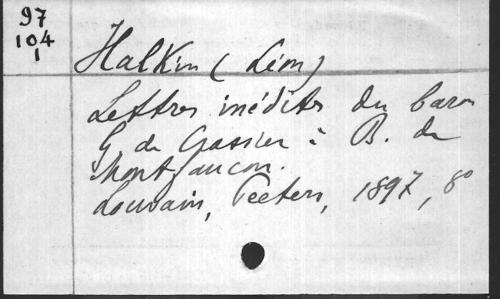 97
104
1
Halkin (Léon)
Lettres inédites du baron
G. de Crassier à B. de
Montfaucon.
Louvain, Peeters, 1897, 8º